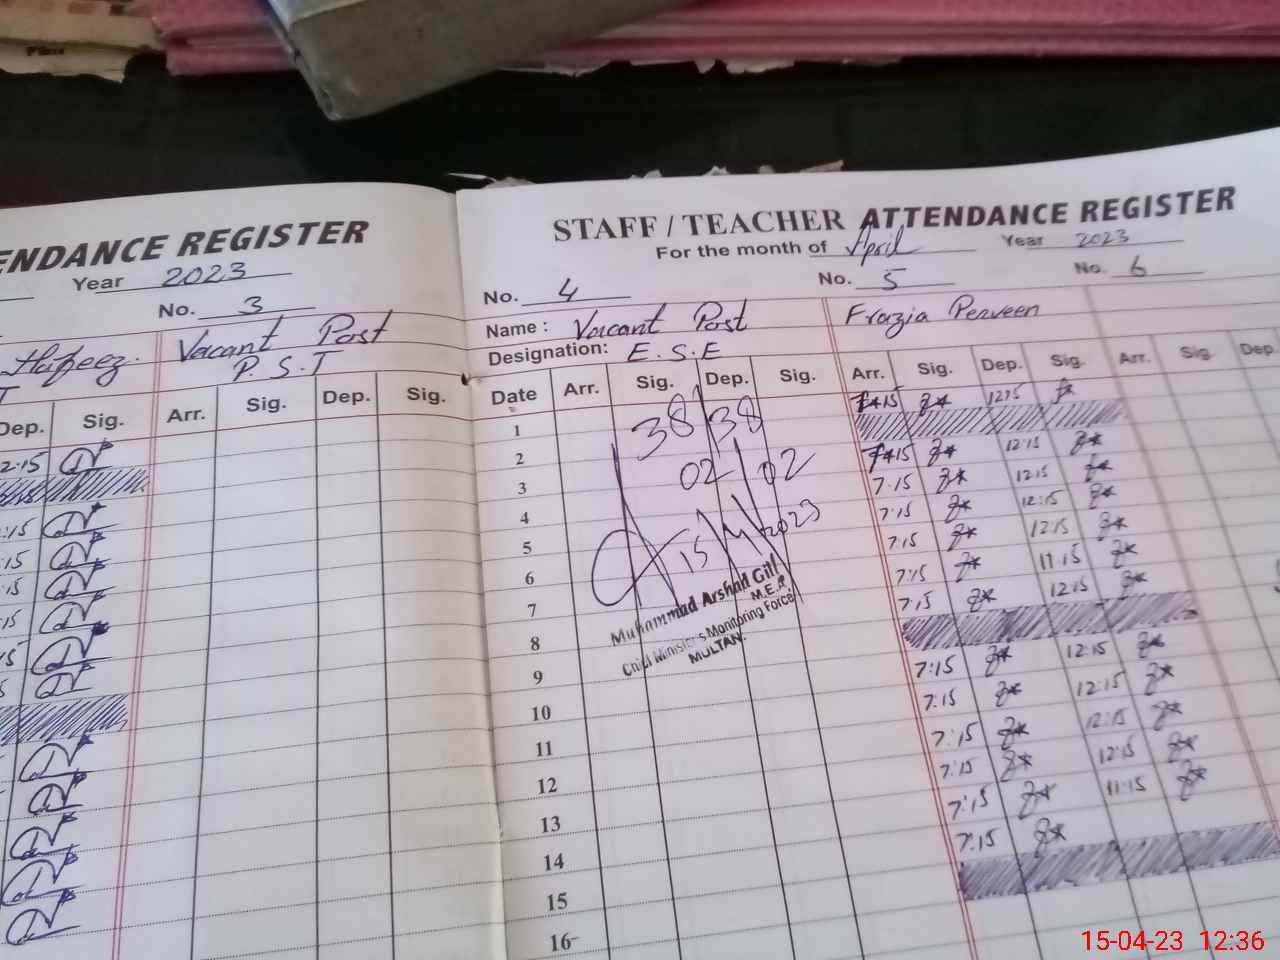 ENDANCE REGISTER
Year 2023
No. 3
Hafeez. Vacant Post
P.S.T
Dep. Sig. Arr. Sig. Dep. Sig.
2:15
:15
:15
:15
15
STAFF / TEACHER ATTENDANCE REGISTER
For the month of April Year 2023
No. 4 No. 5 No. 6
Name : Vacant Post Frazia Perveen
Designation: E.S.E
Date Arr. Sig. Dep. Sig. Arr. Sig. Dep. Sig. Arr. Sig. Dep.
1 38/38 12:15
2
3 02-/02 12:15
4 7:15 12:15
5 2023 7:15 12:15
6 7:15 12:15
7 7:15 11:15
8 7:15 12:15
9
10 7:15 12:15
11 7:15 12:15
12 7:15 12:15
13 7:15 12:15
14 7:15 11:15
15 7:15
16
Muhammad Arshad Gill
M.E.A
Chief Minister's Monitoring Force
MULTAN.
15-04-23 12:36